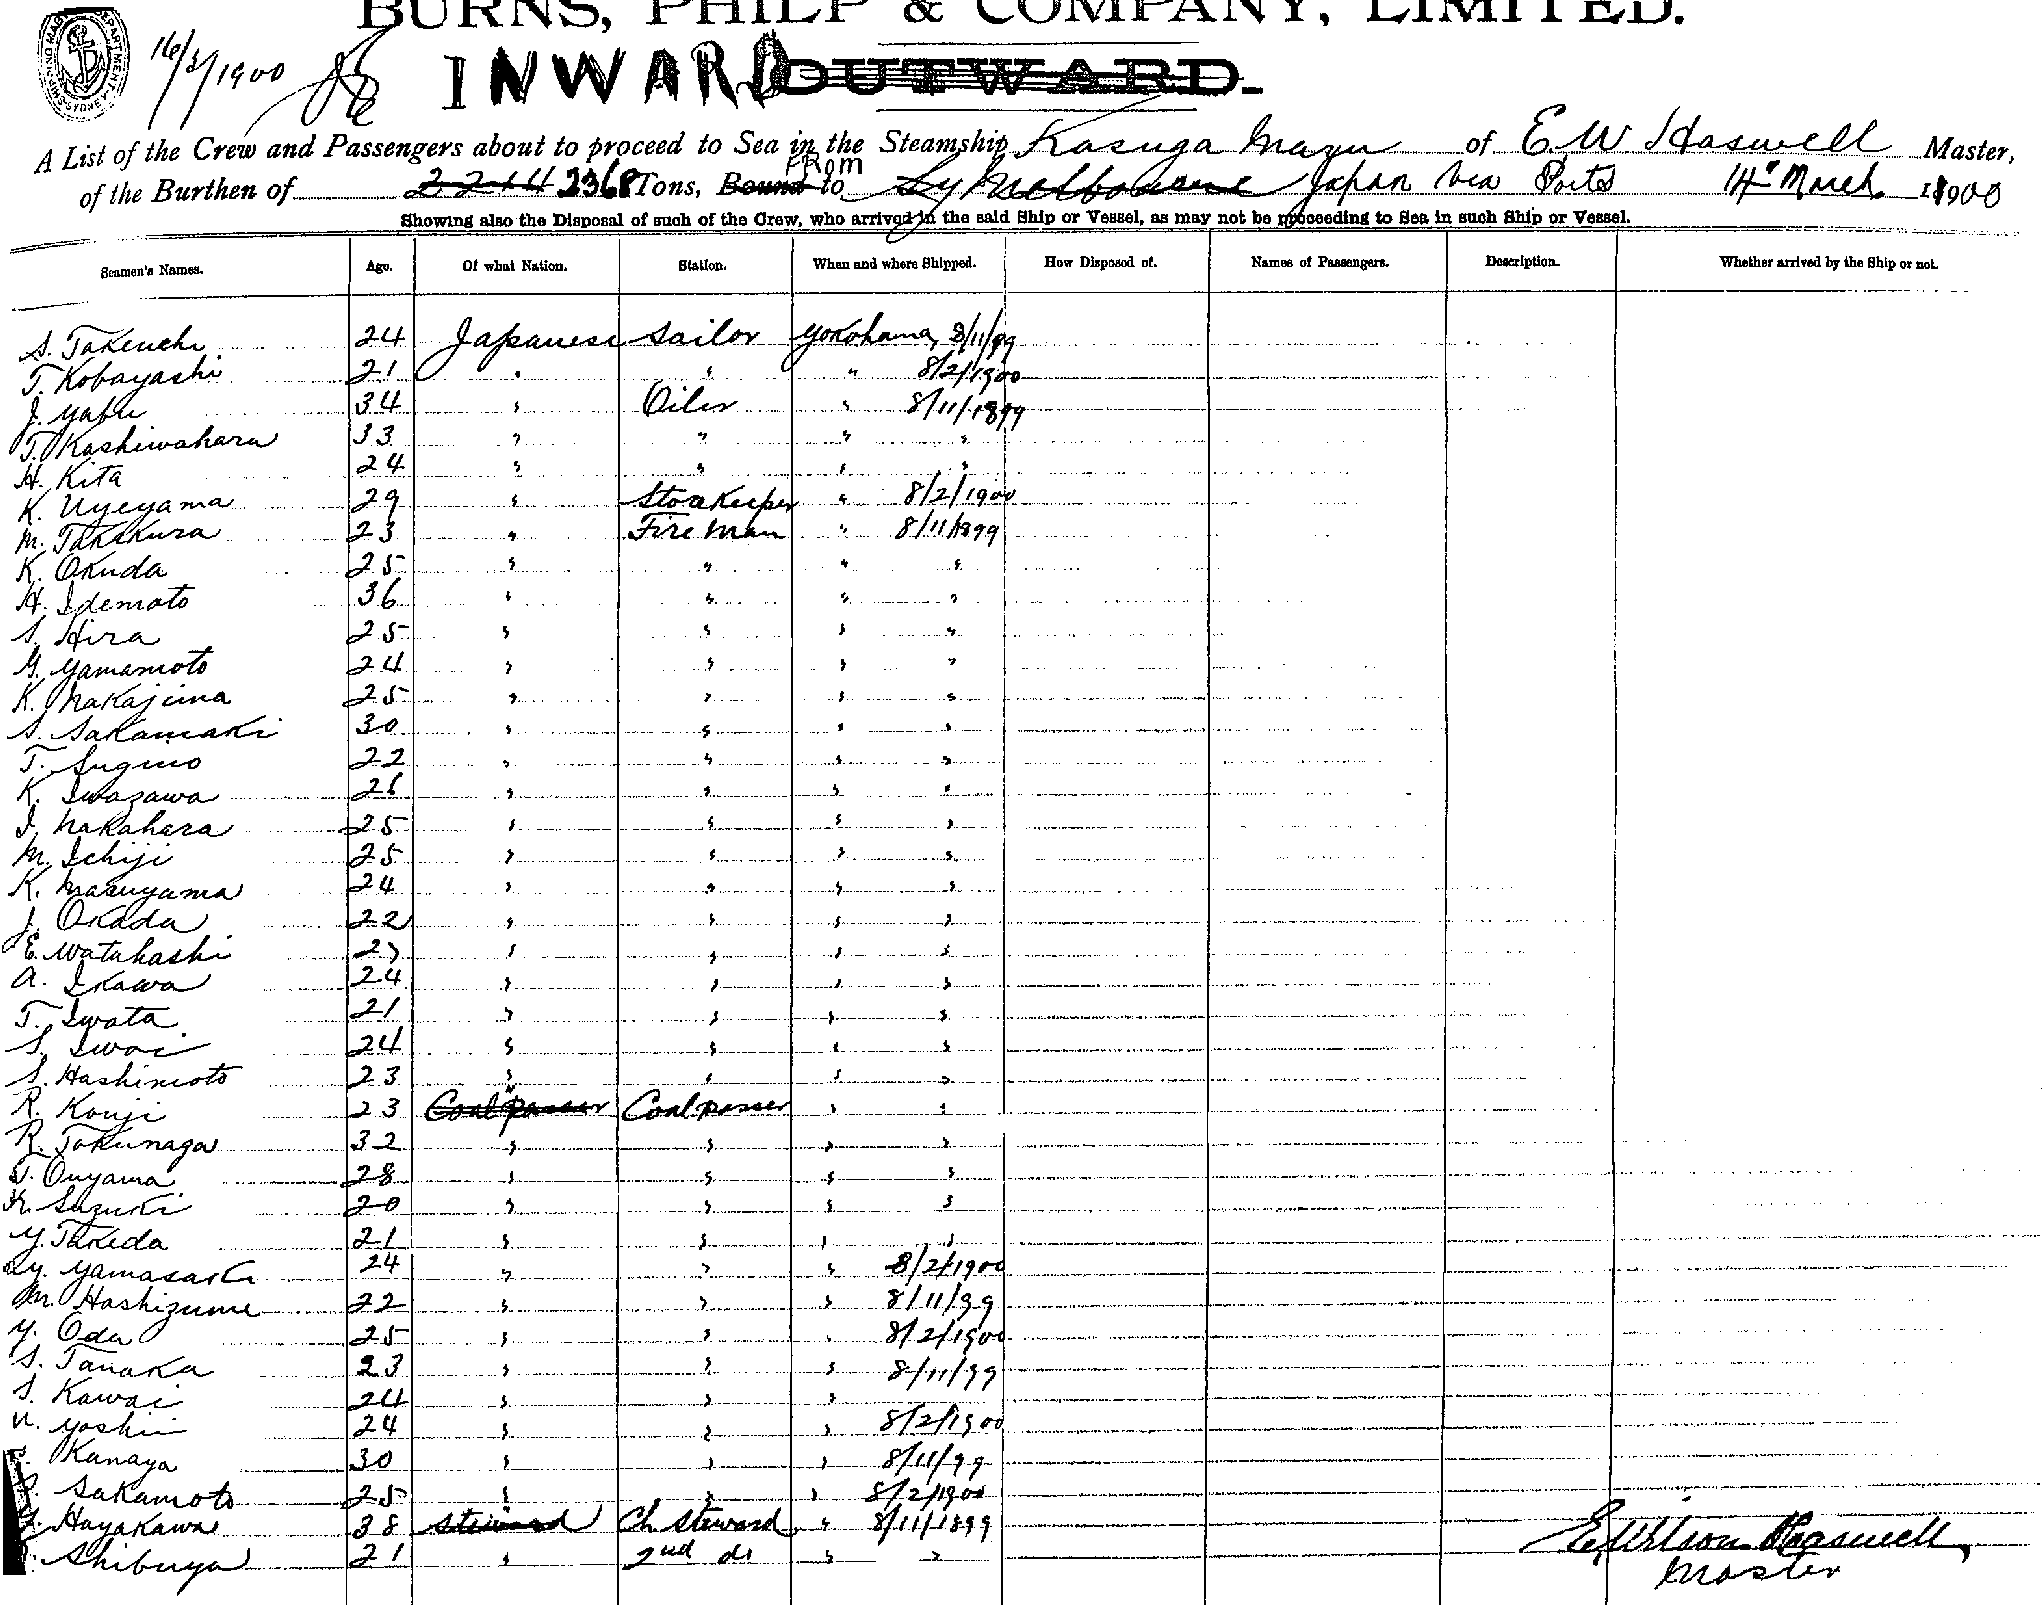 BURNS, PHILP & COMPANY, LIMITED.
16/3/1900
INWARD OUTWARD.
A List of the Crew and Passengers about to proceed to Sea in the Steamship Kasuga Maru of E. W. Haswell Master,
FROM
of the Burthen of 2214 2368 Tons, Bound to Melbourne Japan via Ports 14th March 1900
Showing also the Disposal of such of the Crew, who arrived in the said Ship or Vessel, as may not be proceeding to Sea in such Ship or Vessel.
Seamen's Names. Age. Of what Nation. Station. When and where Shipped. How Disposed of. Names of Passengers. Description. Whether arrived by the Ship or not.
S. Takeuchi 24 Japanese Sailor Yokohama, 8/11/99
T. Kobayashi 21 " " " 8/2/1900
J. Yabu 34 " Oiler " 8/11/1899
T. Kashiwahara 33 " " " "
H. Kita 24 " " " "
K. Uyeyama 29 " Storekeeper " 8/2/1900
M. Takakura 23 " Fireman " 8/11/1899
K. Okuda 25 " " " "
H. Idemoto 36 " " " "
S. Hira 25 " " " "
G. Yamamoto 24 " " " "
K. Nakajima 25 " " " "
S. Sakamaki 30 " " " "
T. Sugino 22 " " " "
K. Iwazawa 26 " " " "
I. Nakahara 25 " " " "
M. Ichiji 25 " " " "
K. Masuyama 24 " " " "
J. Okada 22 " " " "
E. Watahashi 27 " " " "
A. Ikawa 24 " " " "
T. Iwata 21 " " " "
S. Iwai 24 " " " "
S. Hashimoto 23 " " " "
R. Konji 23 Coalpasser Coalpasser " "
R. Tokunaga 32 " " " "
T. Ouyama 28 " " " "
K. Suzuki 20 " " " "
Y. Takeda 21 " " " "
Y. Yamasaki 24 " " " 8/2/1900
M. Hashizume 22 " " " 8/11/99
Y. Oda 25 " " " 8/2/1900
S. Tanaka 23 " " " 8/11/99
S. Kawai 24 " " "
U. Yoshii 24 " " " 8/2/1900
Kanaya 30 " " " 8/11/99
Sakamoto 25 " " " 8/2/1900
Hayakawa 38 Steward Ch. Steward " 8/11/1899
Shibuya 21 " 2nd do " "
E. Wilson Haswell
Master